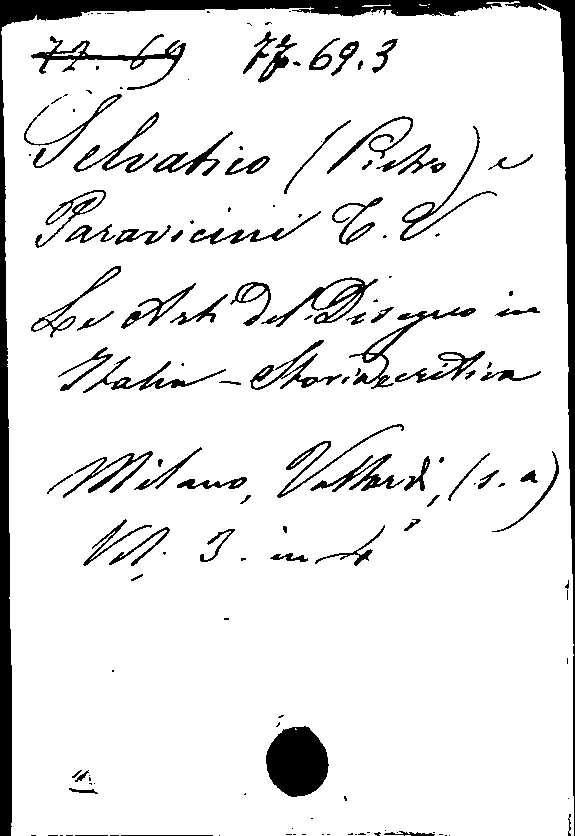 72. 69 77.69.3
Selvatico (Pietro) e
Paravicini T. V.
Le Arti del Disegno in
Italia - Storia e critica
Milano, Vallardi, (s. a)
Vol. 3. in 4°